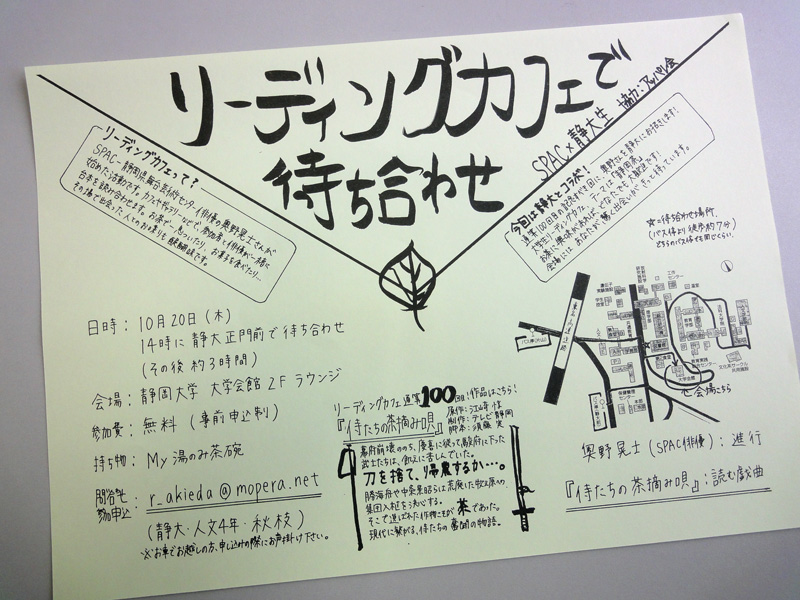 リーディングカフェで
待ち合わせ
SPAC×静大生 協力:アッパレ会
リーディングカフェって?
SPAC-静岡県舞台芸術センター俳優の奥野晃士さんが
始めた活動です。カフェやギャラリーなどで、参加者と俳優が一緒に
台本を読み合わせます。お茶で一息ついたり、お菓子を食べたり…
その場で出会った人とのお喋りも醍醐味です。
今回は静大とコラボ!
☆=待ち合わせ場所
(バス停より徒歩約7分)
どちらのバス停でも同じくらい。
日時:10月20日(木)
14時に静大正門前で待ち合わせ
(その後約3時間)
会場:静岡大学 大学会館2Fラウンジ
参加費:無料(事前申込制)
持ち物:My湯のみ茶碗
r_akieda@mopera.net
(静大・人文4年・秋枝)
※お車でお越しの方、申し込みの際にお声掛け下さい。
リーディングカフェ通算100回!作品はこちら!
『侍たちの茶摘み唄』
制作:テレビ静岡
幕府崩壊ののち、慶喜に従って駿府に下った
武士たちは、飢えに苦しんでいた。
刀を捨て、帰農するか…。
勝海舟や中條景昭らは荒廃した牧之原の
集団入植を決心する。
そこで選ばれた作物こそが茶であった。
現代に繋がる、侍たちの奮闘の物語。
東名高速道路
大学会館
会場こちら
奥野晃士(SPAC俳優):進行
『侍たちの茶摘み唄』:読む戯曲